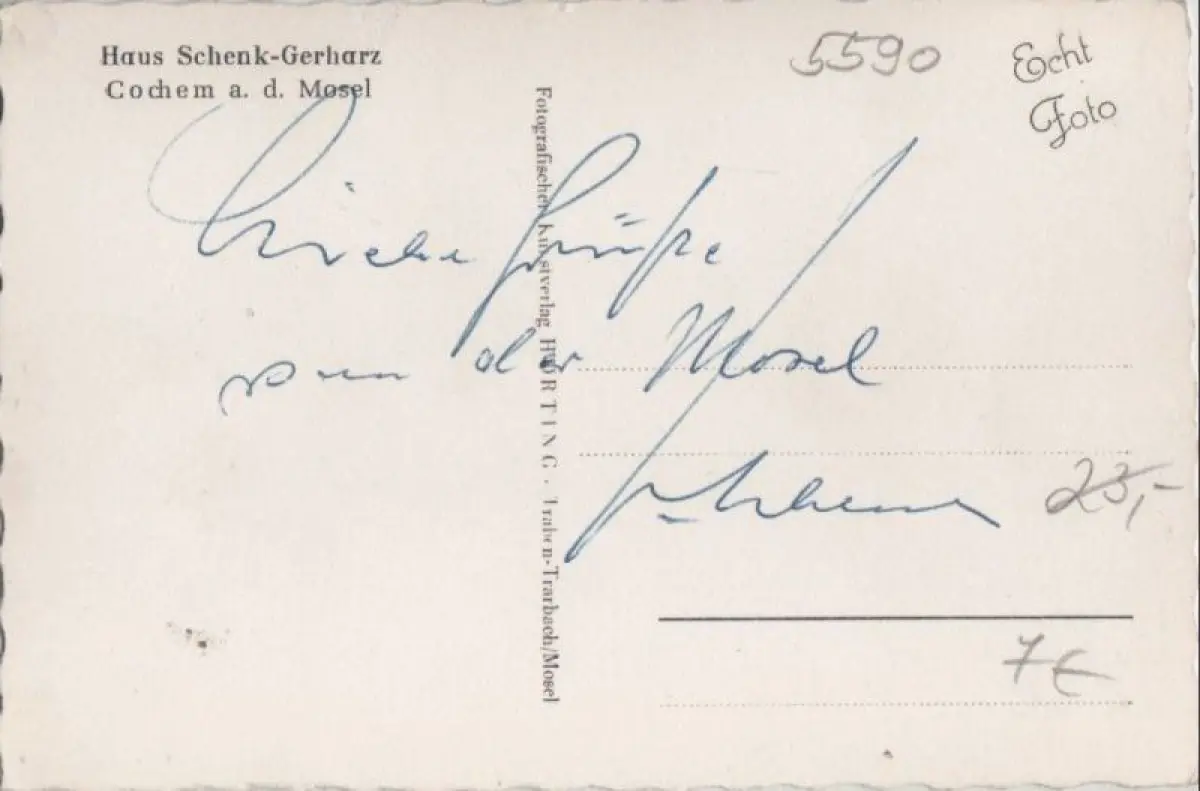 Haus Schenk-Gerharz
Cochem a. d. Mosel
5590
Echt
Foto
Fotografischer Kunstverlag HWORTING · Traben-Trarbach/Mosel
Liebe Grüße
von der Mosel
23,-
7€